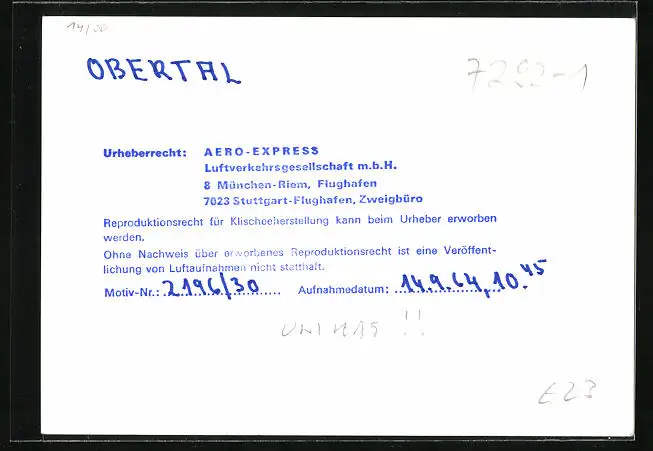 14/00
OBERTAL
7292-1
Urheberrecht: AERO-EXPRESS
Luftverkehrsgesellschaft m.b.H.
8 München-Riem, Flughafen
7023 Stuttgart-Flughafen, Zweigbüro
Reproduktionsrecht für Klischeeherstellung kann beim Urheber erworben
werden.
Ohne Nachweis über erworbenes Reproduktionsrecht ist eine Veröffent-
lichung von Luftaufnahmen nicht statthaft.
Motiv-Nr.: 2196/30 Aufnahmedatum: 14.9.64, 10.45
!!
E23